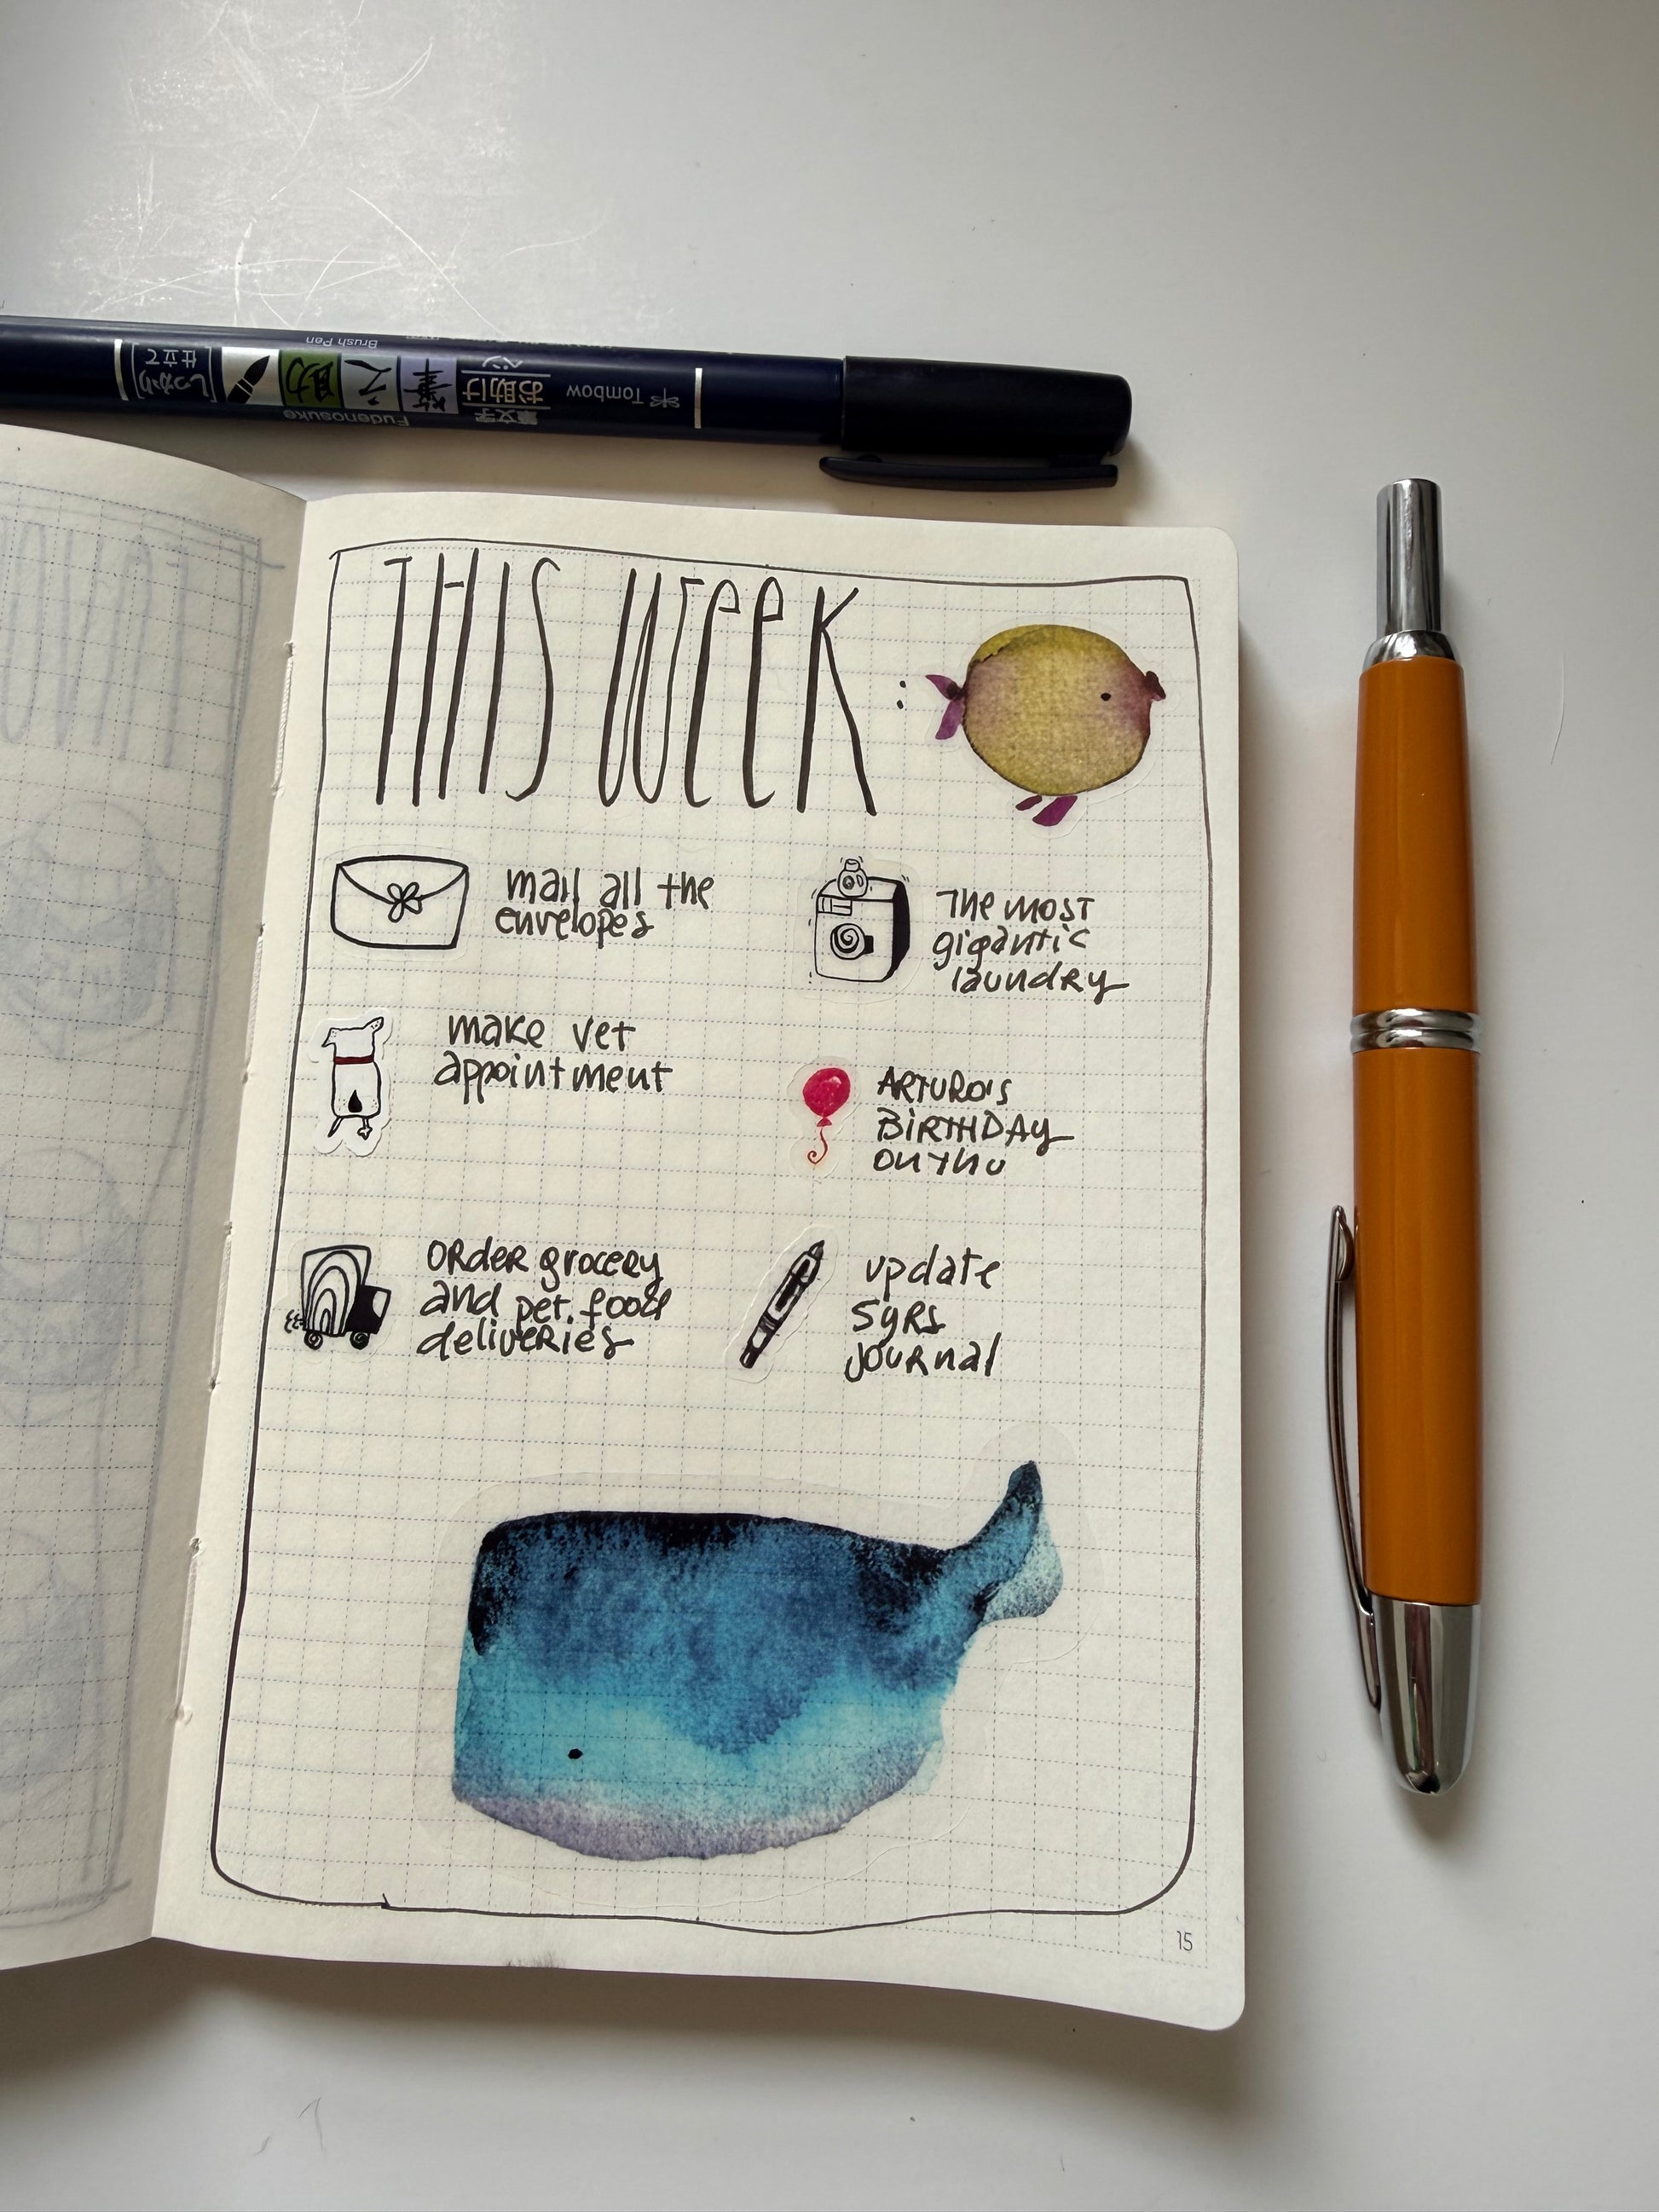 Brush Pen
しっかり
仕立て
筆
之
助
筆文字
お助け
ペン
Tombow
Fudenosuke
THIS WEEK :
mail all the
envelopes
The most
gigantic
laundry
make vet
appointment
ARTURO'S
BIRTHDAY
ON THU
order grocery
and pet food
deliveries
update
5yrs
journal
15